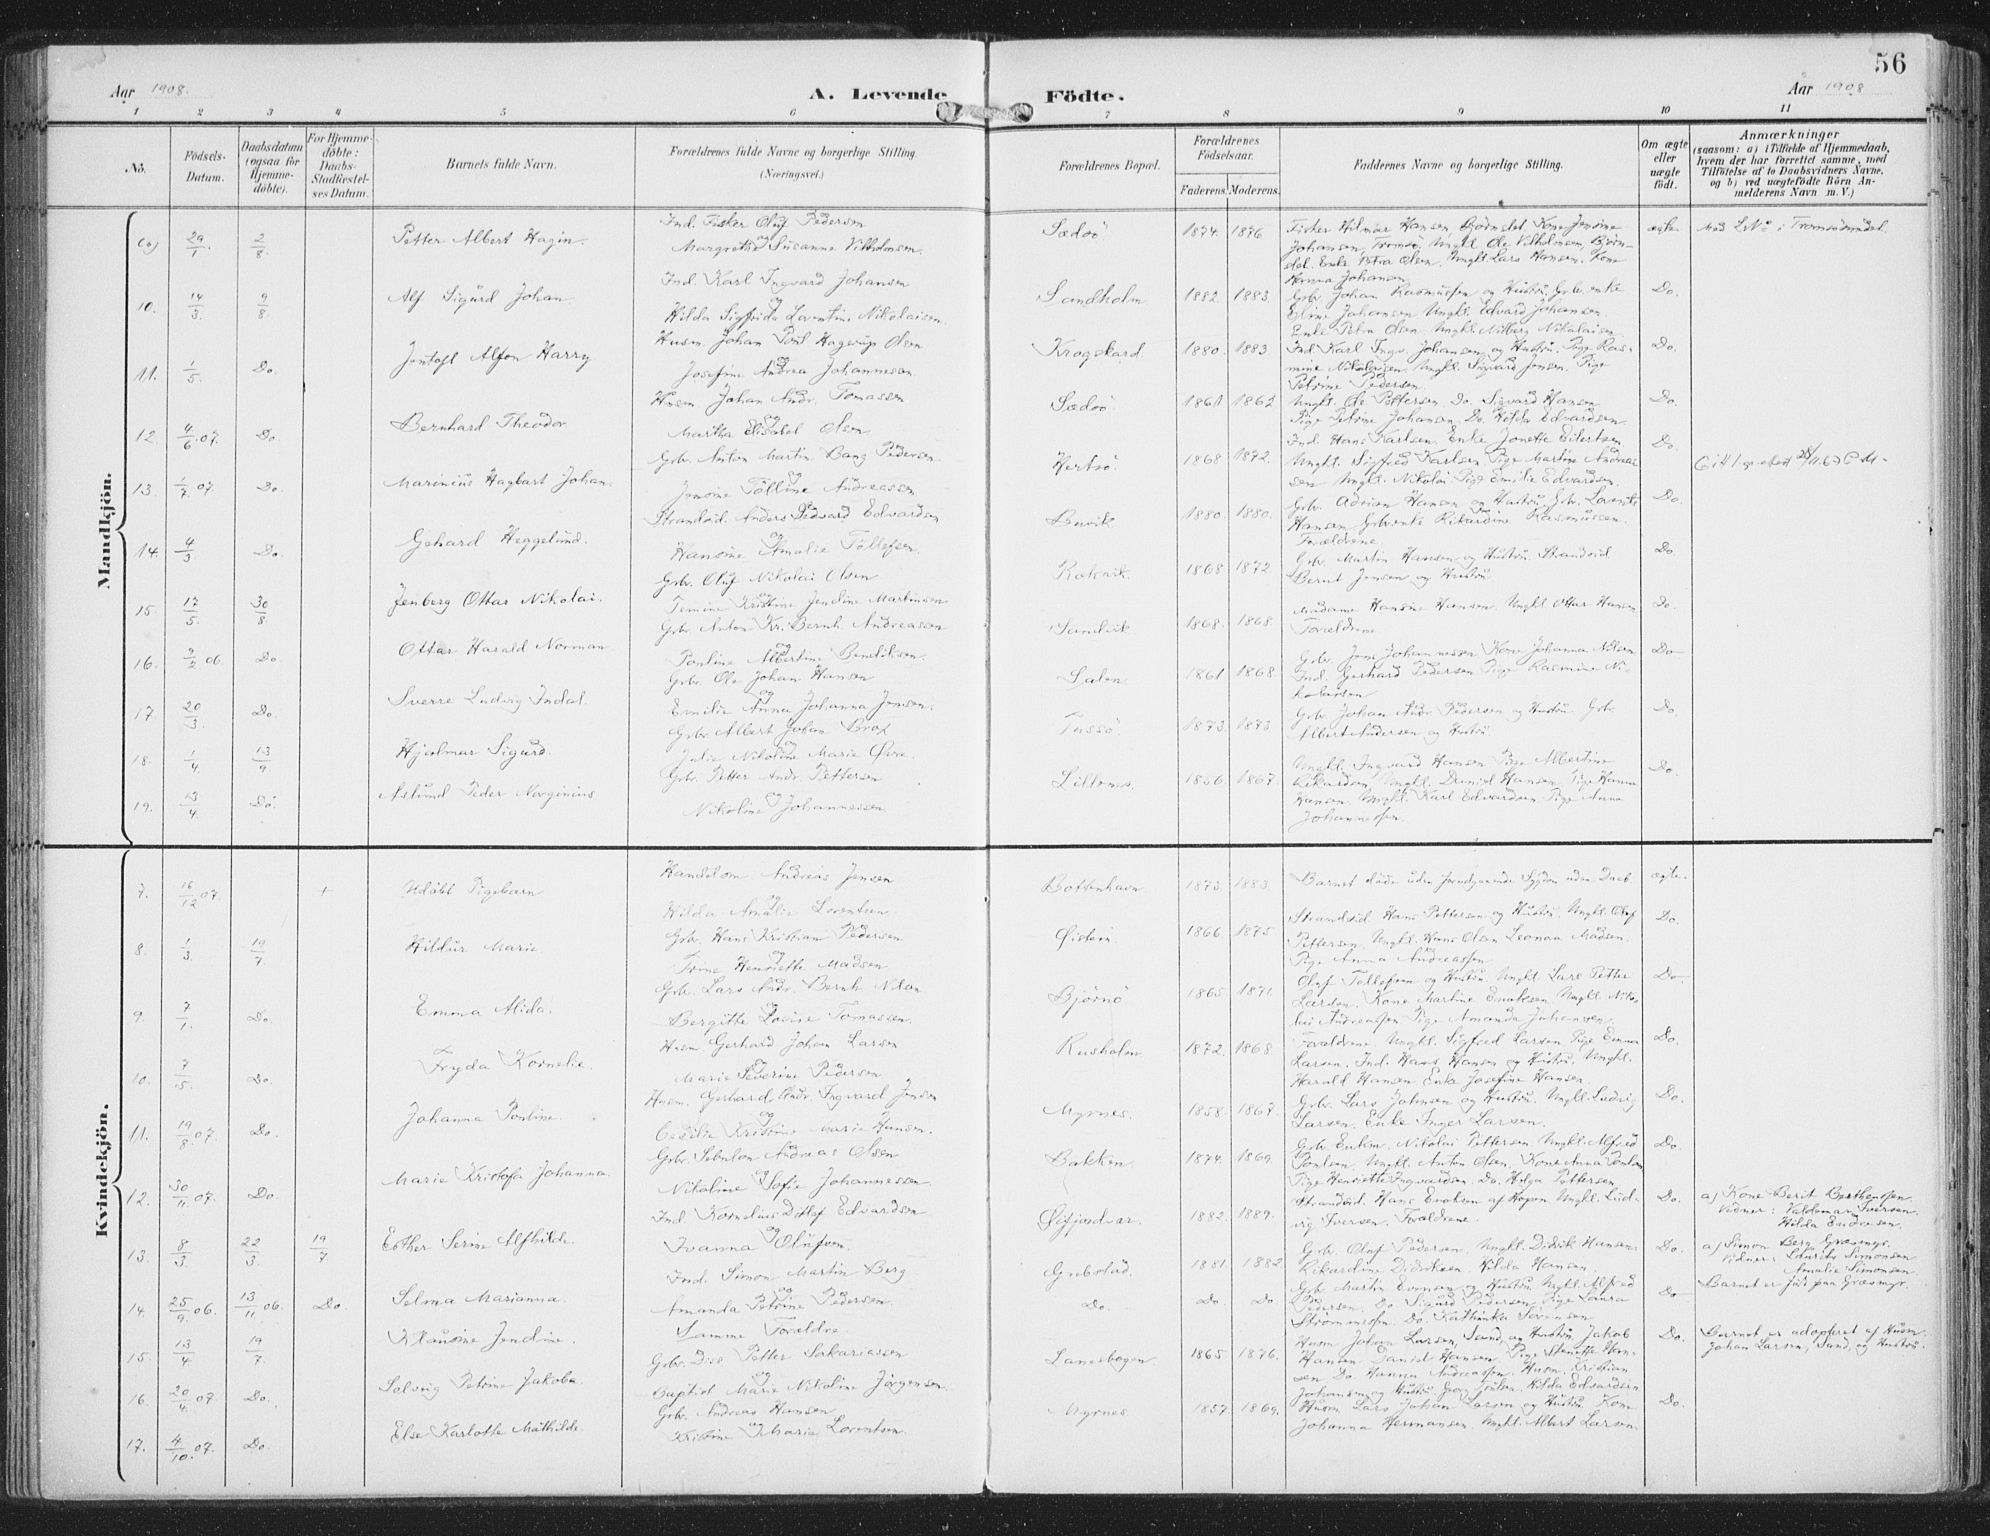 56
Aar 1908. A. Levende Födte. Aar 1908
1 2 3 4 5 6 7 8 9 10 11
No. Födsels-Datum. Daabsdatum (ogsaa for Hjemme-döbte). For Hjemme-döbte: Daabs-Stadfæstel-ses Datum. Barnets fulde Navn. Forældrenes fulde Navne og borgerlige Stilling. (Næringsvei.) Forældrenes Bopæl. Forældrenes Födselsaar. Faderens. Moderens. Faddernes Navne og borgerlige Stilling. Om ægte eller uægte födt. Anmærkninger (saasom: a) i Tilfælde af Hjemmedaab, hvem der har forrettet samme, med Tilföielse af to Daabsvidners Navne, og b) ved uægtefödte Börn An-melderens Navn m. V.)
Mandkjön.
29/1 2/8 Petter Albert Hagin. Ind. Fisker Oluf Pedersen og Margrethe Susanne Vilhelmsen. Sædsö 1874. 1876 Fisker Hilmar Hansen, Kone Jensine Johansen, Tromsö. Ungkl. Ole Vilhelmsen, Enke Petra Olsen. Ungkl. Lars Hansen. Kone Hanna Johansen ægte
10. 14/3 9/8 Alf Sigurd Johan Ind. Karl Ingvard Johansen og Hilda Sigfrida Lorentine Nikolaisen. Sandholm 1882 1883. Gbr. Johan Rasmussen og Hustru. Gbr. enke Johansen. Ungkl. Edvard Johansen. Enke Petra Olsen. Ungkl. Nikolaisen Do.
11. 1/5. Do. Jentoft Alfon Harry Husm. Johan Poul Hagerup Olsen og Josefine Andrea Johannesen Krogskard 1880. 1883. Ind. Karl Ingv. Johansen og Hustru. Pige Rasmine Nikolaisen. Ungkl. Sigvard Jensen. Pige Petrine Pedersen. Do.
12. 4/6.07. Do. Bernhard Theodor Husm. Johan Andr. Tomassen og Martha Elisabet Olsen Sædsö. 1861 1862 Ungkl. Ole Pettersen. Do. Sigvard Hansen Pige Petrine Johansen. Do. Hilda Edvardsen. Do.
13. 1/7 07. Do. Marinius Hagbart Johan. Gbr. Anton Martin Bang Pedersen og Jensine Tolline Andreassen Hertsö. 1868 1872. Ind. Hans Karlsen. Enke Jonette Eilertsen Ungkl. Sigfred Karlsen. Pige Martine Andreassen Ungkl. Nikolai. Pige Emilie Edvardsen. Do
14. 4/3 Do. Gehard Heggelund. Strandsid. Anders Edvard Edvardsen og Hansine Amalie Tollefsen. Buvik 1880. 1880. Gbr. Adrian Hansen og Hustru. Gbr. Lorents Hansen. Gbr.enke Rikardine Rasmussen. Forældrene. Do.
15. 17/5. 30/8. Jenberg Ottar Nikolai. Gbr. Oluf Nikolai Olsen og Kristine Jendine Martinsen Rakvik. 1868 1872 Gbr. Martin Hansen og Hustru. Strandsid Bernt Jensen og Hustru. Do.
16. 9/2 06. Do. Ottar Harald Norman Gbr. Anton Kr. Bernh. Andreassen og Pauline Albertine Bendiksen. Sandvik 1868. 1868. Madame Hansine Hansen. Ungkl. Ottar Hansen Forældrene. Do.
17 20/3. Do. Sverre Ludvig Indal. Gbr. Ole Johan Hansen og Emilie Anna Johanna Jensen. Salen 1861 1868. Gbr. Jens Johannessen Kone Johanna Nilsen Ind. Gerhard Pedersen Pige Rasmine Nikolaisen Do
18. 1/4. 13/9 Hjalmar Sigurd. Gbr. Albert Johan Brox og Julie Nikoline Marie Tussö. 1873 1873 Gbr. Johan Andr. Pedersen og Hustru. Gbr. Albert Andersen og Hustru Do.
19. 13/4. Do. Aslund Peder Norginius Gbr. Petter Andr. Pettersen og Nikoline Johannessen. 1856 1867 Ungkl. Ingvard Hansen Pige Albertine Rikardsen, Ungkl. Daniel Hansen, Pige Hanna Hansen. Ungkl. Karl Edvardsen Pige Anna Johannessen. Do.
Kvindekjön.
7. 16/12 07. + Udöbt Pigebarn Handelsm Andreas Jensen og Hilda Amalie Lorentsen. Bottenhavn 1873 1883. Barnet döde uden Sygdom uden Daab ægte.
8. 1/3. 19/7. Hildur Marie. Gbr. Hans Kristian Pedersen og Trine Henriette Madsen Öistein. 1866 1875 Strandsid Hans Pettersen og Hustru. Ungkl. Oluf Pettersen. Ungkl. Hans Olsen Leonoa Madsen. Pige Anna Andreassen Do.
9. 7/1. Do. Emma Alida. Gbr. Lars Andr. Bernh. Nilsen og Bergitte Lovise Tomassen. Björnö 1865 1871. Oluf Tollefsen og Hustru. Ungkl. Lars Petter Larsen. Kone Martine Enoksen Ungkl. Nikolai Andreassen Pige Amanda Johansen. Do.
10. 7/5. Do. Fryda Kornelie. Husm Gerhard Johan Larsen og Marie Severine Pedersen Rusholm 1872. 1868 Forældrene. Ungkl. Sigfred Larsen Pige Emma Larsen. Ind. Hans Hansen og Hustru. Ungkl. Harald Hansen. Enke Josefine Hansen. Do.
11. 19/8 07. Do. Johanna Pouline. Husm. Gerhard Andr. Ingvard Jensen og Cecilie Kristine Marie Hansen. Myrnes. 1858. 1867. Gbr. Lars Johnsen og Hustru. Ungkl. Ludvig Larsen. Enke Inger Larsen. Do.
12. 30/11. 07. Do. Marie Kristofa Johanna. Gbr. Sebulon Andreas Olsen og Nikoline Sofie Johannessen Bakken 1874. 1869 Gbr. Nikolai Pettersen. Ungkl. Alfred Poulsen. Ungkl. Anton Olsen. Kone Anna Poulsen Pige Henriette Ingvardsen. Do. Helga Pettersen Do
13. 8/3. 22/3. 19/7. Esther Serine Alfhilde. Ind. Kornelius Ditlef Edvardsen og Ivanna Olufsen. Öifjordvær. 1882. 1889. Strandsid. Hans Enoksen af Ungkl. Ludvig Iversen. Forældrene. Do. a) Kone Berit Berthensen. Vidner: Valdemar Iversen. Hilda Endresen.
14. 25/9 06. 13/11 06. Do. Selma Marianna. Ind. Simon Martin Berg og Amanda Petrine Pedersen. Grebstad. 1881. 1882 Gbr. Oluf Pedersen. Ungkl. Didrik Hansen. Rikardine Didriksen. Hilda Hansen. Do. a) Simon Berg Græsmyr. Vidner: Laurits Simonsen Amalie Simonsen Barnet er födt paa Græsmyr.
15. 13/4 19/7. Klausine Jendine. Samme Forældre. Do. Do. Do Gbr. Martin Evensen og Hustru. Ungkl. Alfred Pedersen. Do Sigurd Pedersen. Pige Laura Strömmesen. Do. Kathinka Sörensen Do
16. 20/4 07. Do. Solveig Petrine Jakoba. Gbr. Petter Sakariassen og Baptist Marie Nikoline Jörgensen. Lanesbogen. 1865 1876. Husm Johan Larsen, Sand, og Hustru. Jakob Hansen Daniel Hansen. Pige Hansen Do Hanna Andreassen. Husm. Kristian Johansen og Hustru. Hilda Edvardsen Do. Barnet er adopteret af Husm. Johan Larsen, Sand, og Hustru.
17. 4/10. 07. Do. Else Karlotte Mathilde. Gbr. Andreas Hansen og Kristine Marie Lorentsen. Myrnes 1857. 1869. Husm Lars Johan Larsen og Hustru Kone Johanna Hermansen. Ungkl. Albert Larsen. Do.